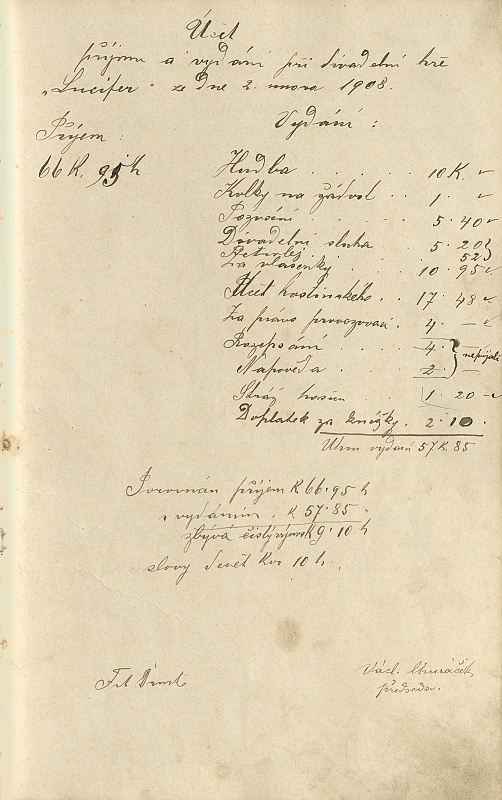 Účet
příjmu a vydání při divadelní hře
„Lucifer" ze dne 2. února 1908.
Příjem: Vydání:
66 K. 95 h Hudba . . . . . 10 K. ✓
Kolky na žádost . . 1. ✓
Pozvání . . . . 5. 40 ✓
Divadelní sluha . 5. 20
52
Za vlásenky . . 10. 95 ✓
Účet hostinského . . 17. 48 ✓
Za právo provozovací . 4. — ✓
Rozepsání . . . 4. — nepřijali
Nápověda . . . 2. —
Stráž hasičů . 1. 20 ✓
Doplatek za knížky . 2. 10.
Úhrn vydání 57 K. 85
Porovnán příjem K 66. 95 h
s vydáním . K 57. 85 .
zbývá čistý výnos K 9. 10 h
slovy devět Kor 10 h.
Václ.
předseda.